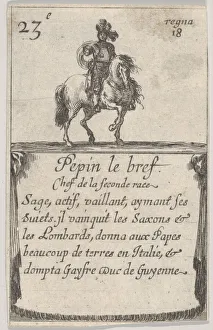 23.e
regna
18
Pepin le bref.
Chef de la seconde race
Sage, actif, vaillant, aymant ses
suiets. il vainquit les Saxons &
les Lombards, donna aux Papes
beaucoup de terres en Italie, &
dompta Gayfre duc de Guyenne